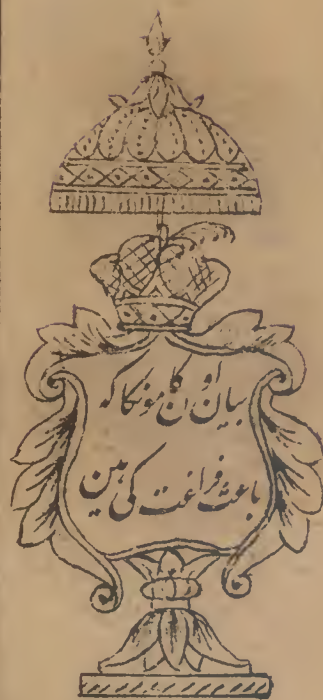 بیان اون کامونکا که
باعث فراغت کی ہین